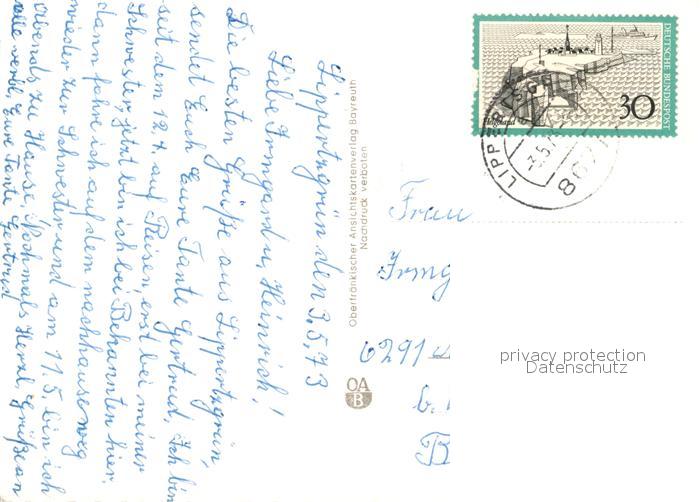 Lippertsgrün den 3.5.73
Liebe Irmgard u. Heinrich!
Die besten Grüße aus Lippertsgrün,
sendet Euch Eure Tante Gertrud, Ich bin
seit dem 12.4. auf Reisen, erst bei meiner
Schwester, jetzt bin ich bei Bekannten hier.
dann fahre ich auf dem nachhauseweg
wieder zur Schwester und am 11.5. bin ich
Abends zu Hause, Nochmals Herzl. Grüße an
alle Eure Tante Gertrud
Oberfränkischer Ansichtskartenverlag Bayreuth
Nachdruck verboten
OA
B
DEUTSCHE BUNDESPOST
Helgoland
30
LIPPE
8671
Frau
Irmg
6291
b.
B
privacy protection
Datenschutz